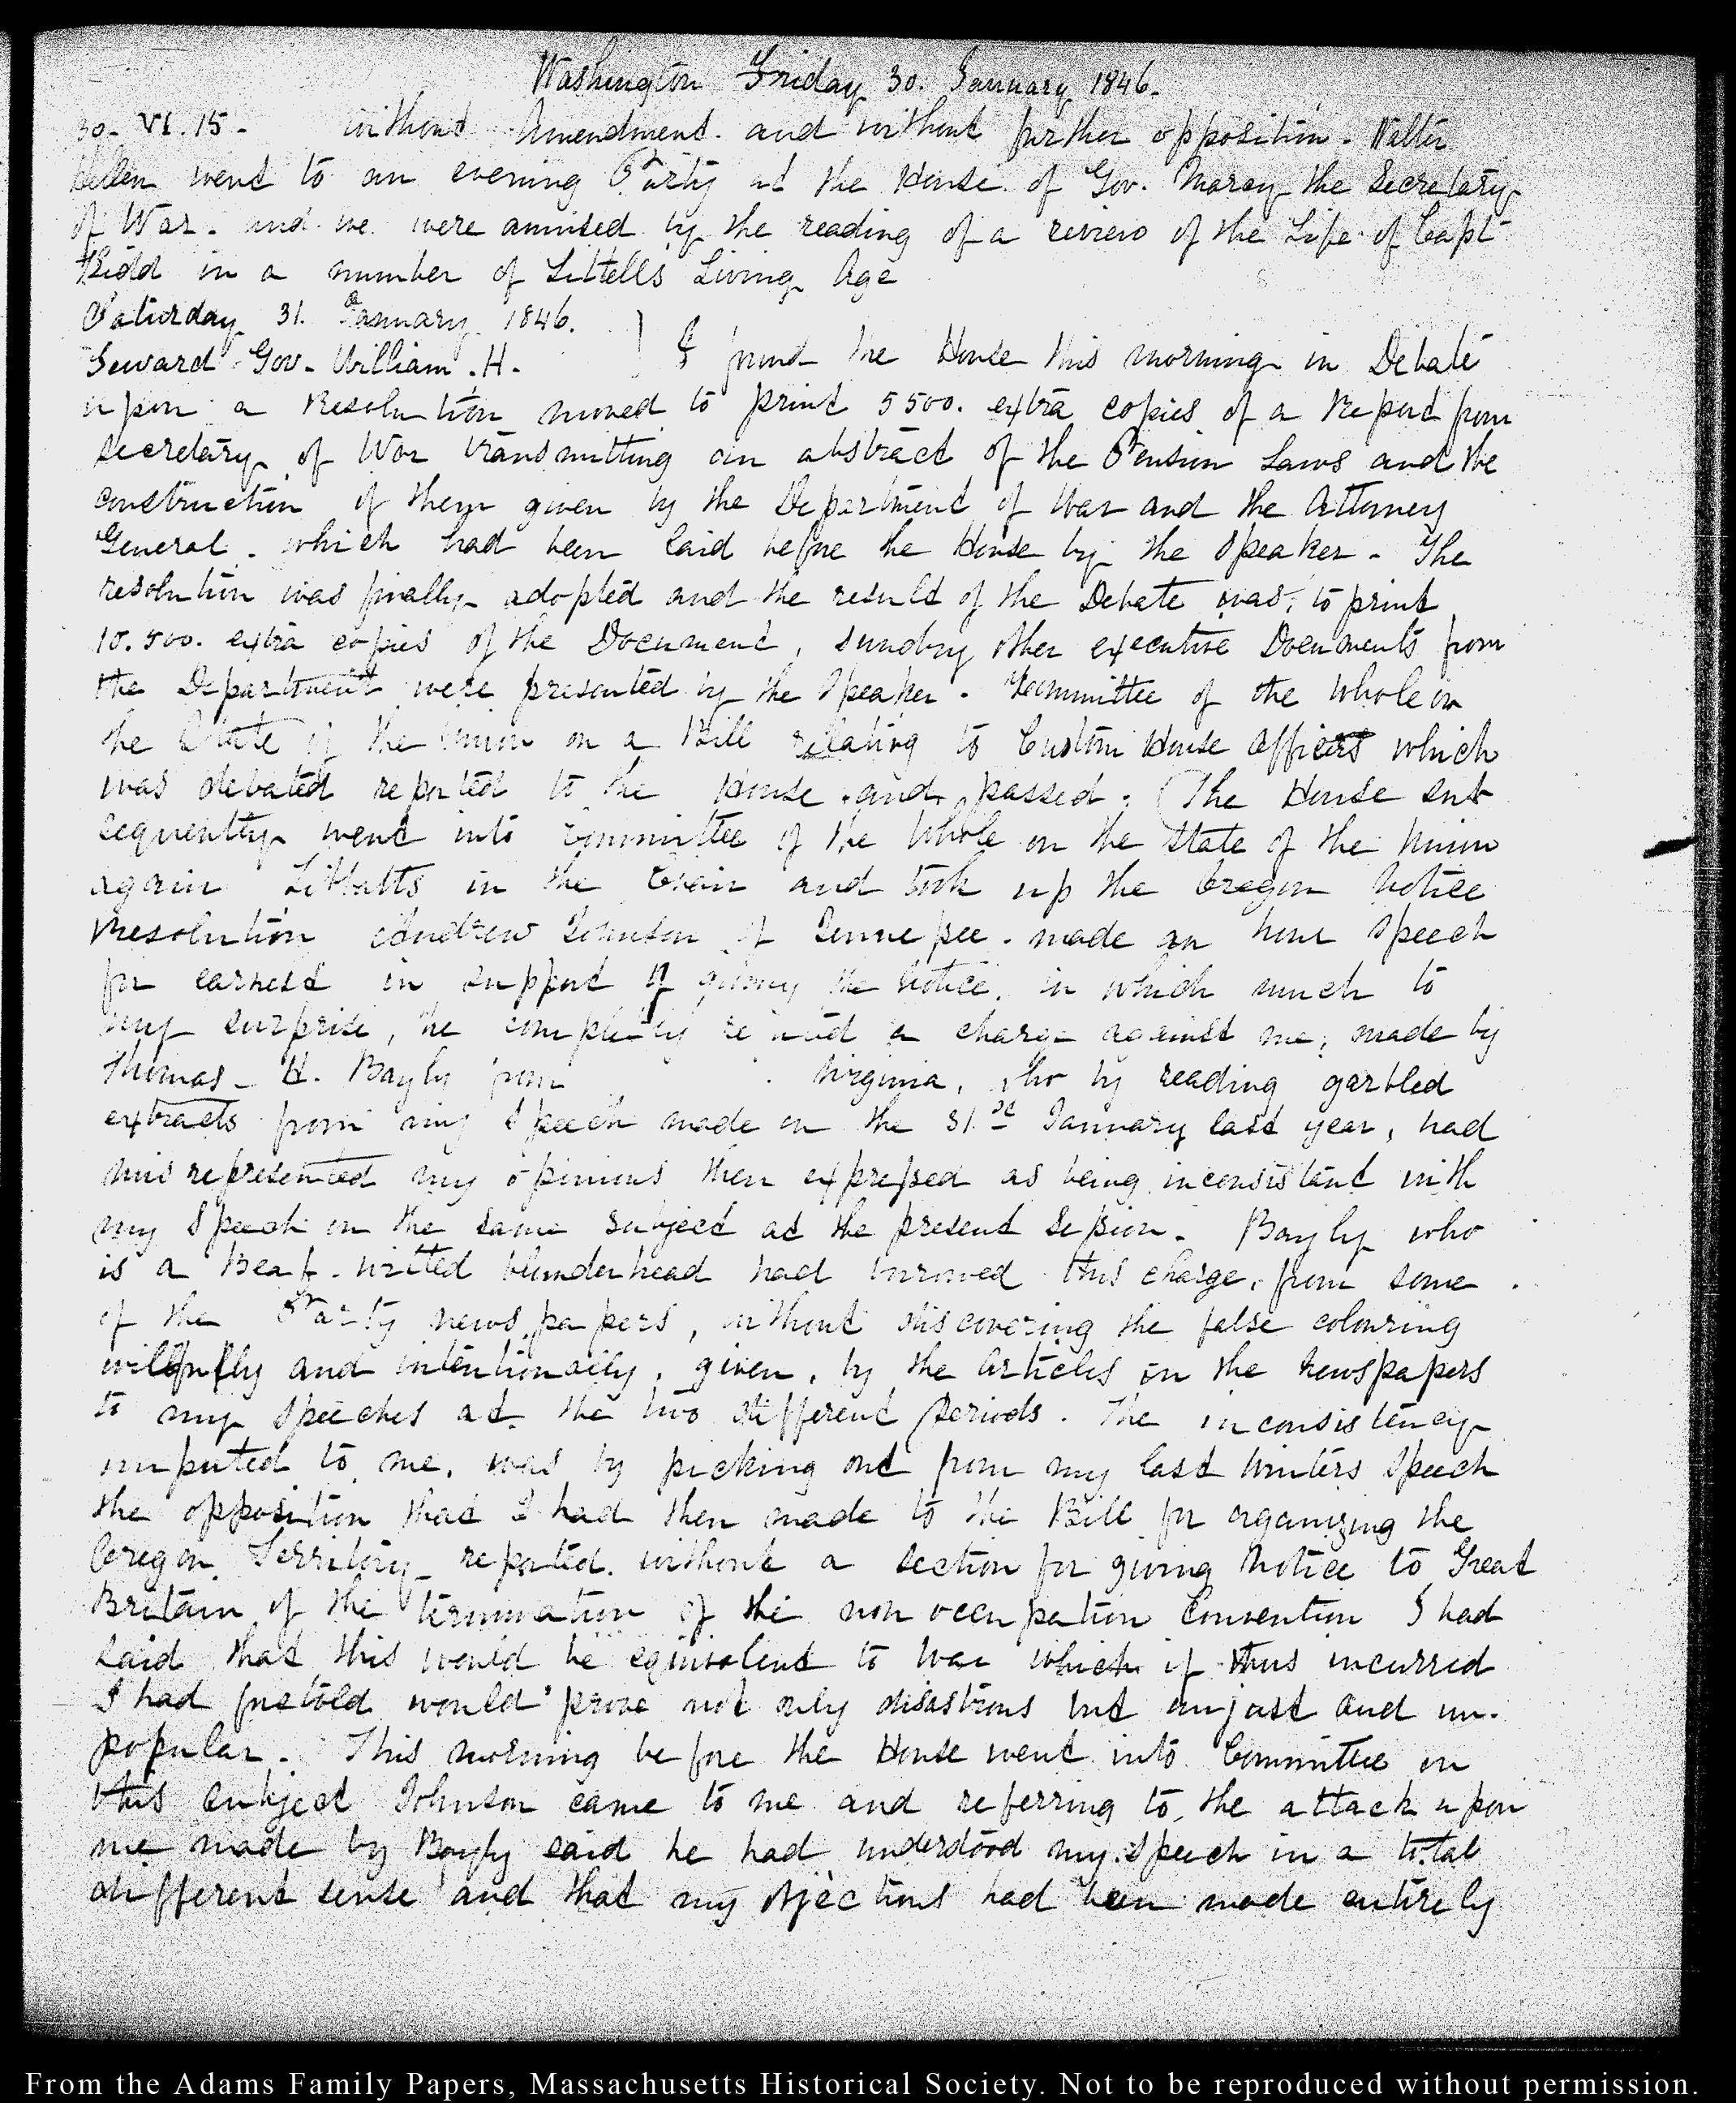 Washington Friday 30. January 1846.
30. VI. 15. without Amendment and without further opposition. Walter
Hellen went to an evening Party at the House of Gov. Marcy the Secretary
of War. and we were amused by the reading of a review of the Life of Capt
Kidd in a number of Littells Living Age
Saturday 31. January 1846.
Seward Gov. William. H. } I found the House this morning in Debate
upon a Resolution moved to print 5500. extra copies of a Report from
Secretary of War transmitting an abstract of the Pension Laws and the
construction of them given by the Department of War and the Attorney
General. which had been laid before the House by the Speaker. The
resolution was finally adopted and the result of the Debate was, to print
10.500. extra copies of the Document, sundry other executive Documents from
the Department were presented by the Speaker. Committee of the Whole on
the State of the Union on a Bill relating to Custom House Officers which
was debated reported to the House and passed. The House sub
sequently went into Committee of the Whole on the State of the Union
again Tibbatts in the Chair and took up the Oregon Notice
Resolution Andrew Johnson of Tennessee. made an hour speech
for earnest in support of giving the Notice. in which much to
my surprise, he completely refuted a charge against me, made by
Thomas H. Bayly from Virginia, who by reading garbled
extracts from my Speech made on the 31st January last year, had
misrepresented my opinions then expressed as being inconsistent with
my Speech on the same subject at the present Session. Bayly who
is a Beaf-witted blunderhead had borrowed this charge, from some
of the Party news papers, without discovering the false colouring
wilfully and intentionally, given, by the Articles in the Newspapers
to my Speeches at the two different periods. The inconsistency
imputed to me, was by picking out from my last Winters Speech
the opposition that I had then made to the Bill for organizing the
Oregon Territory reported without a section for giving Notice to Great
Britain of the termination of the non occupation Convention I had
said that this would be equivalent to War which if thus incurred
I had foretold would prove not only disastrous but unjust and un-
popular. This morning before the House went into Committee on
this subject Johnson came to me and referring to the attack upon
me made by Bayly said he had understood my Speech in a total
different sense and that my objections had been made entirely
From the Adams Family Papers, Massachusetts Historical Society. Not to be reproduced without permission.